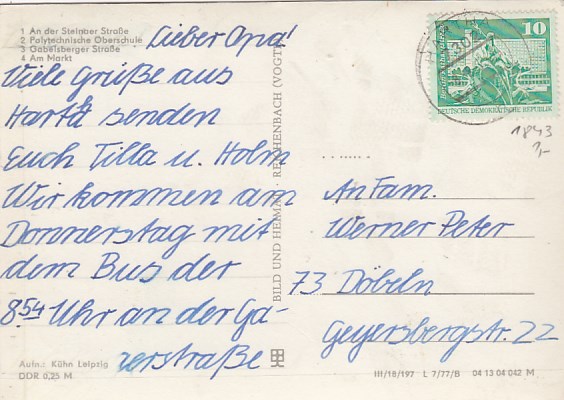 1 An der Steinaer Straße
2 Polytechnische Oberschule
3 Gabelsberger Straße
4 Am Markt
Lieber Opa!
Viele Grüße aus
Hartha senden
Euch Tilla u. Holm
Wir kommen am
Donnerstag mit
dem Bus der
8 54 Uhr an der Ga-
rerstraße
Aufn.: Kühn Leipzig
DDR 0,25 M
BILD UND HEIMAT · REICHENBACH (VOGTL)
10
DEUTSCHE DEMOKRATISCHE REPUBLIK
1843
1,-
An Fam.
Werner Peter
73 Döbeln
Geyersbergstr. 22
III/18/197 L 7/77/B 04 13 04 042 M